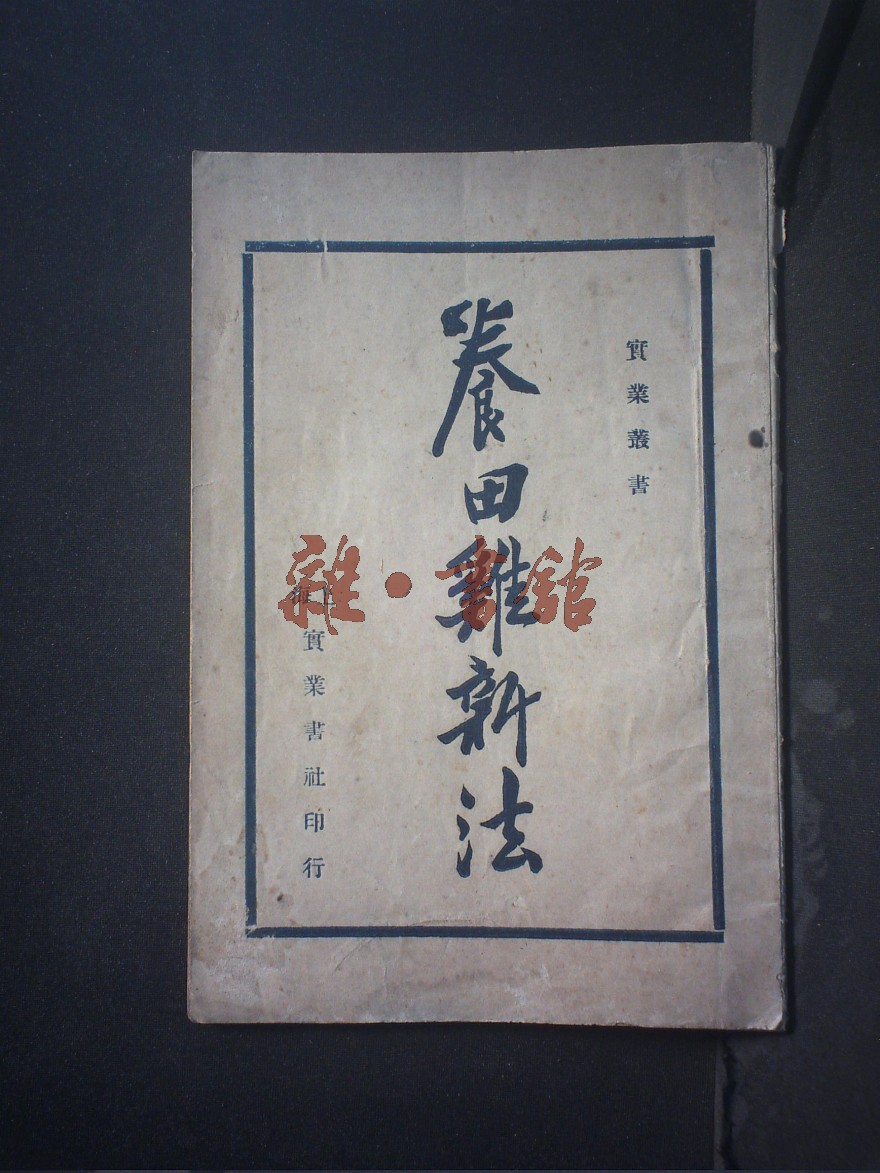 實業叢書
養田雞新法
上海
實業書社印行
雜·書館